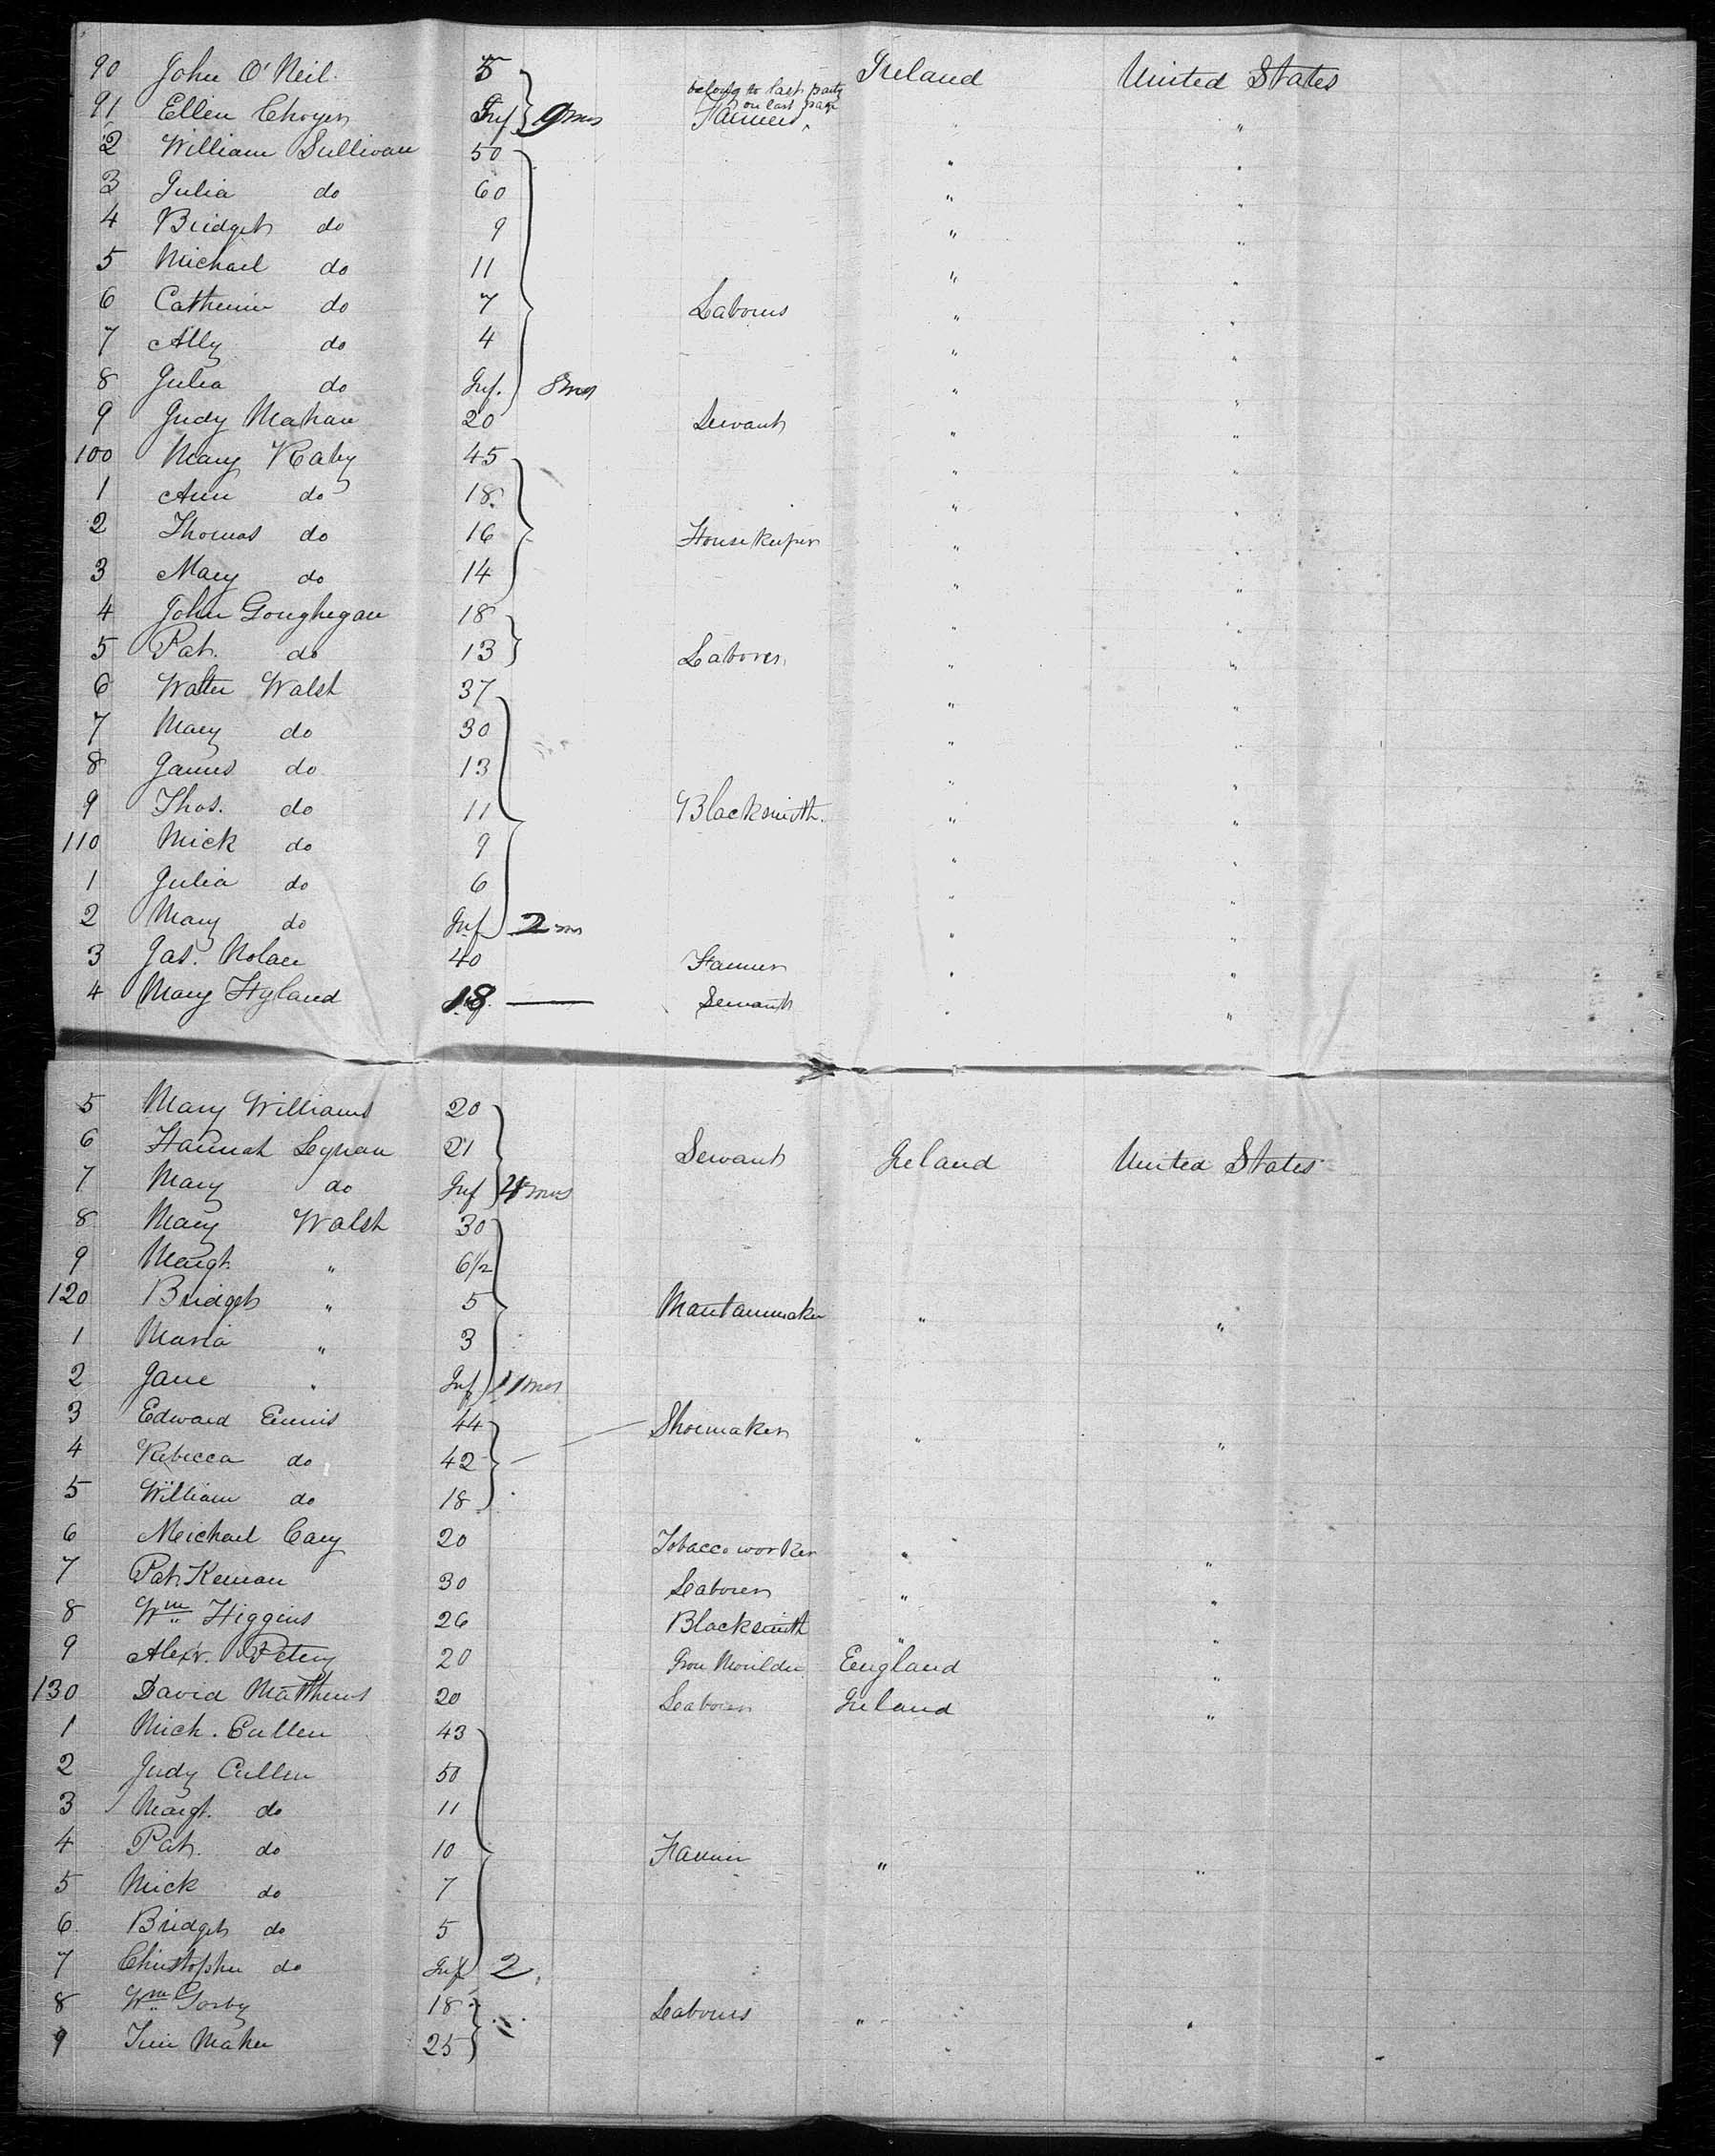 90 John O'Neil 5 Ireland United States
91 Ellen Inf 9 mos belong to last party on last page Farmers " "
2 William Sullivan 50 " "
3 Julia do 60 " "
4 Bridget do 9 " "
5 Michael do 11 " "
6 Catherine do 7 Labourers " "
7 Ally do 4 " "
8 Julia do Inf. 8 mos " "
9 Judy Mahan 20 Servant " "
100 Mary Raby 45 " "
1 Ann do 18 " "
2 Thomas do 16 Housekeeper " "
3 Mary do 14 " "
4 John Goughegan 18 " "
5 Pat. do 13 Laborer " "
6 Walter Walsh 37 " "
7 Mary do 30 " "
8 James do 13 " "
9 Thos. do 11 Blacksmith. " "
110 Mick do 9 " "
1 Julia do 6 " "
2 Mary do Inf 2 m " "
3 Jas. Nolan 40 Farmer " "
4 Mary Hyland 18 — Servant " "
5 Mary Williams 20
6 Hannah Lynan 21 Servant Ireland United States
7 Mary do Inf mos
8 Mary Walsh 30
9 Margt. " 6½
120 Bridget " 5 Mantaumaker " "
1 Maria " 3
2 Jane " Inf 11 mos
3 Edward Ennis 44 Shoemaker " "
4 Rebecca do 42
5 William do 18
6 Meichael Cary 20 Tobacco worker " "
7 Pat Kernan 30 Labourer " "
8 Wm Higgins 26 Blacksmith " "
9 Alexr. Petery 20 Iron Moulder England "
130 David Matthews 20 Labourer Ireland "
1 Mich. Cullen 43
2 Judy Cullen 50
3 Margt. do 11
4 Pat. do 10 Farmer " "
5 Mick do 7
6 Bridget do 5
7 Christopher do Inf 2
8 Wm Gorby 18 Labourers " "
9 Tim Maher 25